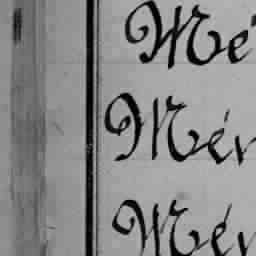 Mé
Mér
Mér